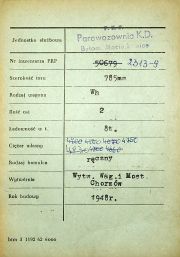 P.K.P.
Jednostka służbowa Parowozownia K.D.
Nr inwentarza PKP 50679 2313-9
Szerokość toru 785mm
Rodzaj wagonu Wh
Ilość osi 2
Ładowność w t. 8t.
Ciężar własny
Rodzaj hamulca ręczny
Wytwórnia Wytw. Wag. i Most.
Chorzów
Rok budowy 1948r.